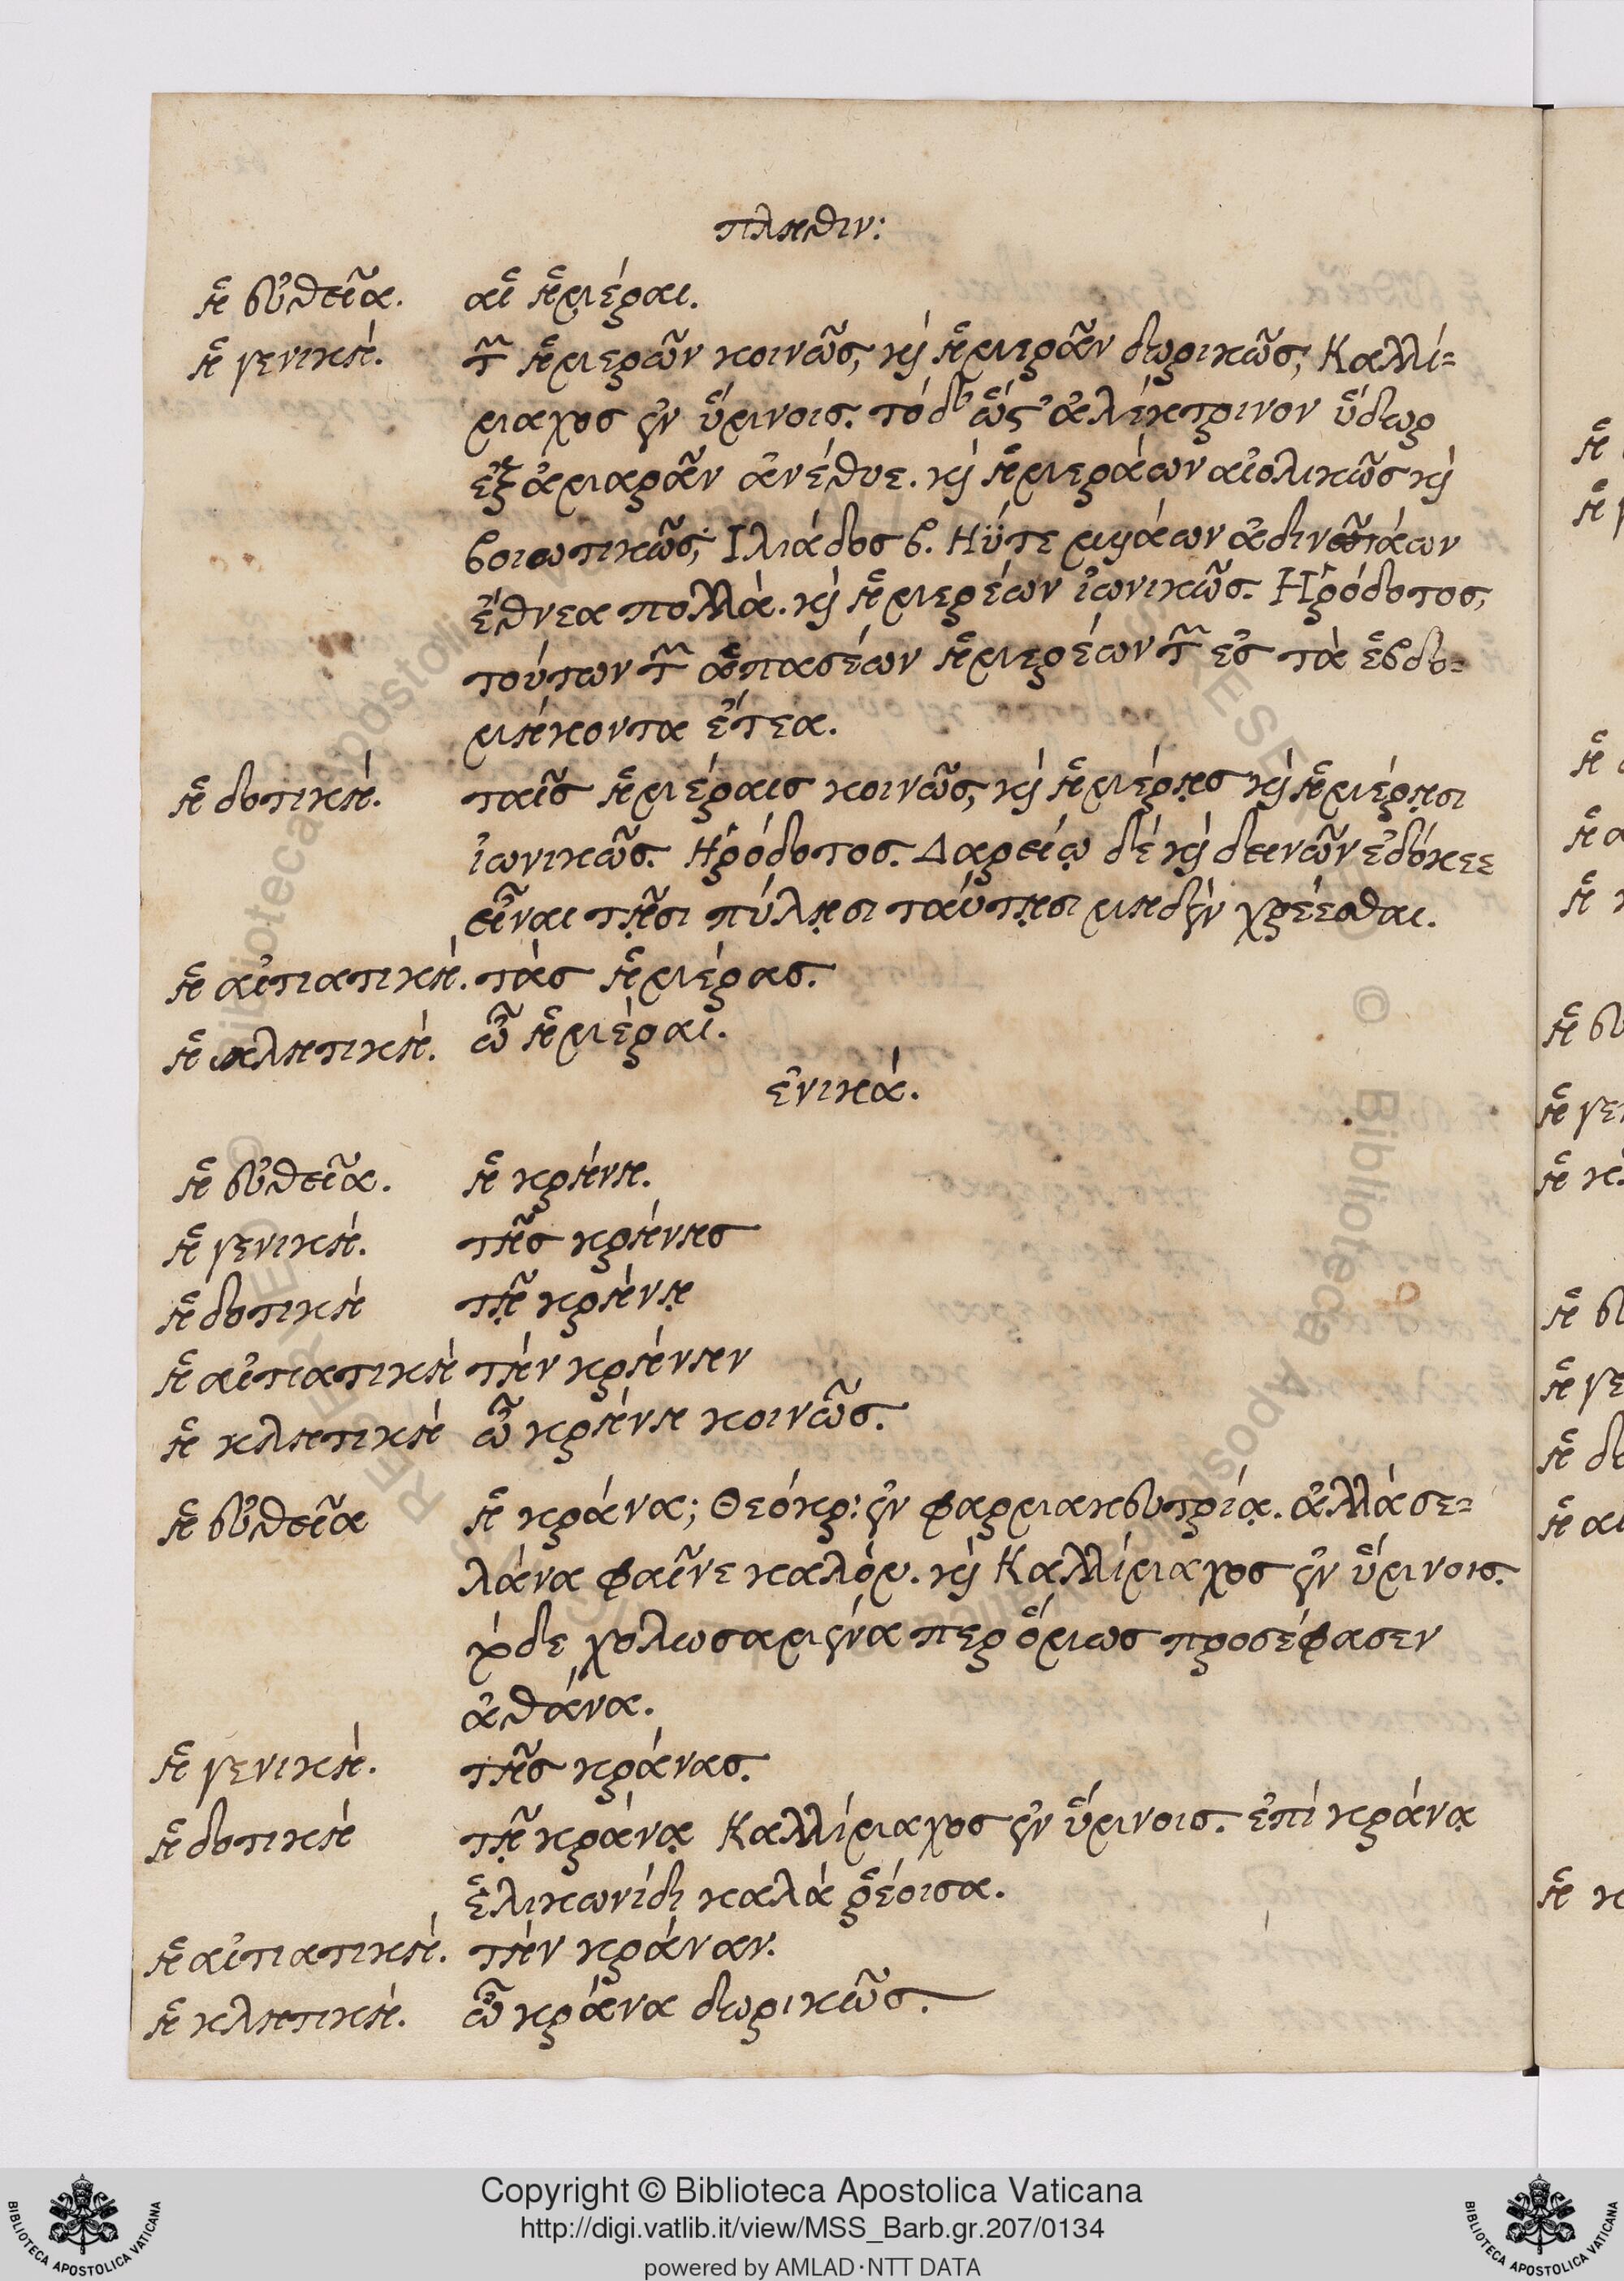 πληθιν:
ἡ εὐθεῖα. αἱ ἡμέραι.
ἡ γενική. τῶν ἡμερῶν κοινῶς, καὶ ἡμερᾶν δωρικῶς, Καλλί=
μαχος ἐν ὕμνοις. τόδ' ὡς ἀλέκτρινον ὕδωρ
ἐξ ἁμαρᾶν ἀνέθυε. καὶ ἡμεράων αἰολικῶς καὶ
βοιωτικῶς, Ιλιάδος β. Ηΰτε μυάων ἀδινάων
ἔθνεα πολλά. καὶ ἡμερέων ἰωνικῶς. Ηρόδοτος,
τούτων τῶν ἁπασέων ἡμερέων τῶν ἐς τὰ ἑβδο=
μήκοντα ἔτεα.
ἡ δοτική. ταῖς ἡμέραις κοινῶς, καὶ ἡμέρῃς καὶ ἡμέρῃσι
ἰωνικῶς. Ηρόδοτος. Δαρείῳ δέ καὶ δεινῶν ἐδόκεε
εἶναι τῇσι πύλῃσι ταύτῃσι μηδὲν χρέεσθαι.
ἡ αἰτιατική. τὰς ἡμέρας.
ἡ κλητική. ὦ ἡμέραι.
ἑνικά.
ἡ εὐθεῖα. ἡ κρήνη.
ἡ γενική. τῆς κρήνης
ἡ δοτική τῇ κρήνῃ
ἡ αἰτιατική τήν κρήνην
ἡ κλητική ὦ κρήνη κοινῶς.
ἡ εὐθεῖα ἡ κράνα; Θεόκρ: ἐν φαρμακευτρίᾳ. ἀλλά σε=
λάνα φαῖνε καλόν. καὶ Καλλίμαχος ἐν ὕμνοις.
χολωσαμένα περ ὅμως προσέφασεν
ἀθάνα.
ἡ γενική. τῆς κράνας.
ἡ δοτική τῇ κράνᾳ Καλλίμαχος ἐν ὕμνοις. ἐπί κράνᾳ
ἑλικωνίδι καλά ῥέοισα.
ἡ αἰτιατική. τήν κράναν.
ἡ κλητική. ὦ κράνα δωρικῶς.
Copyright © Biblioteca Apostolica Vaticana
http://digi.vatlib.it/view/MSS_Barb.gr.207/0134
powered by AMLAD·NTT DATA